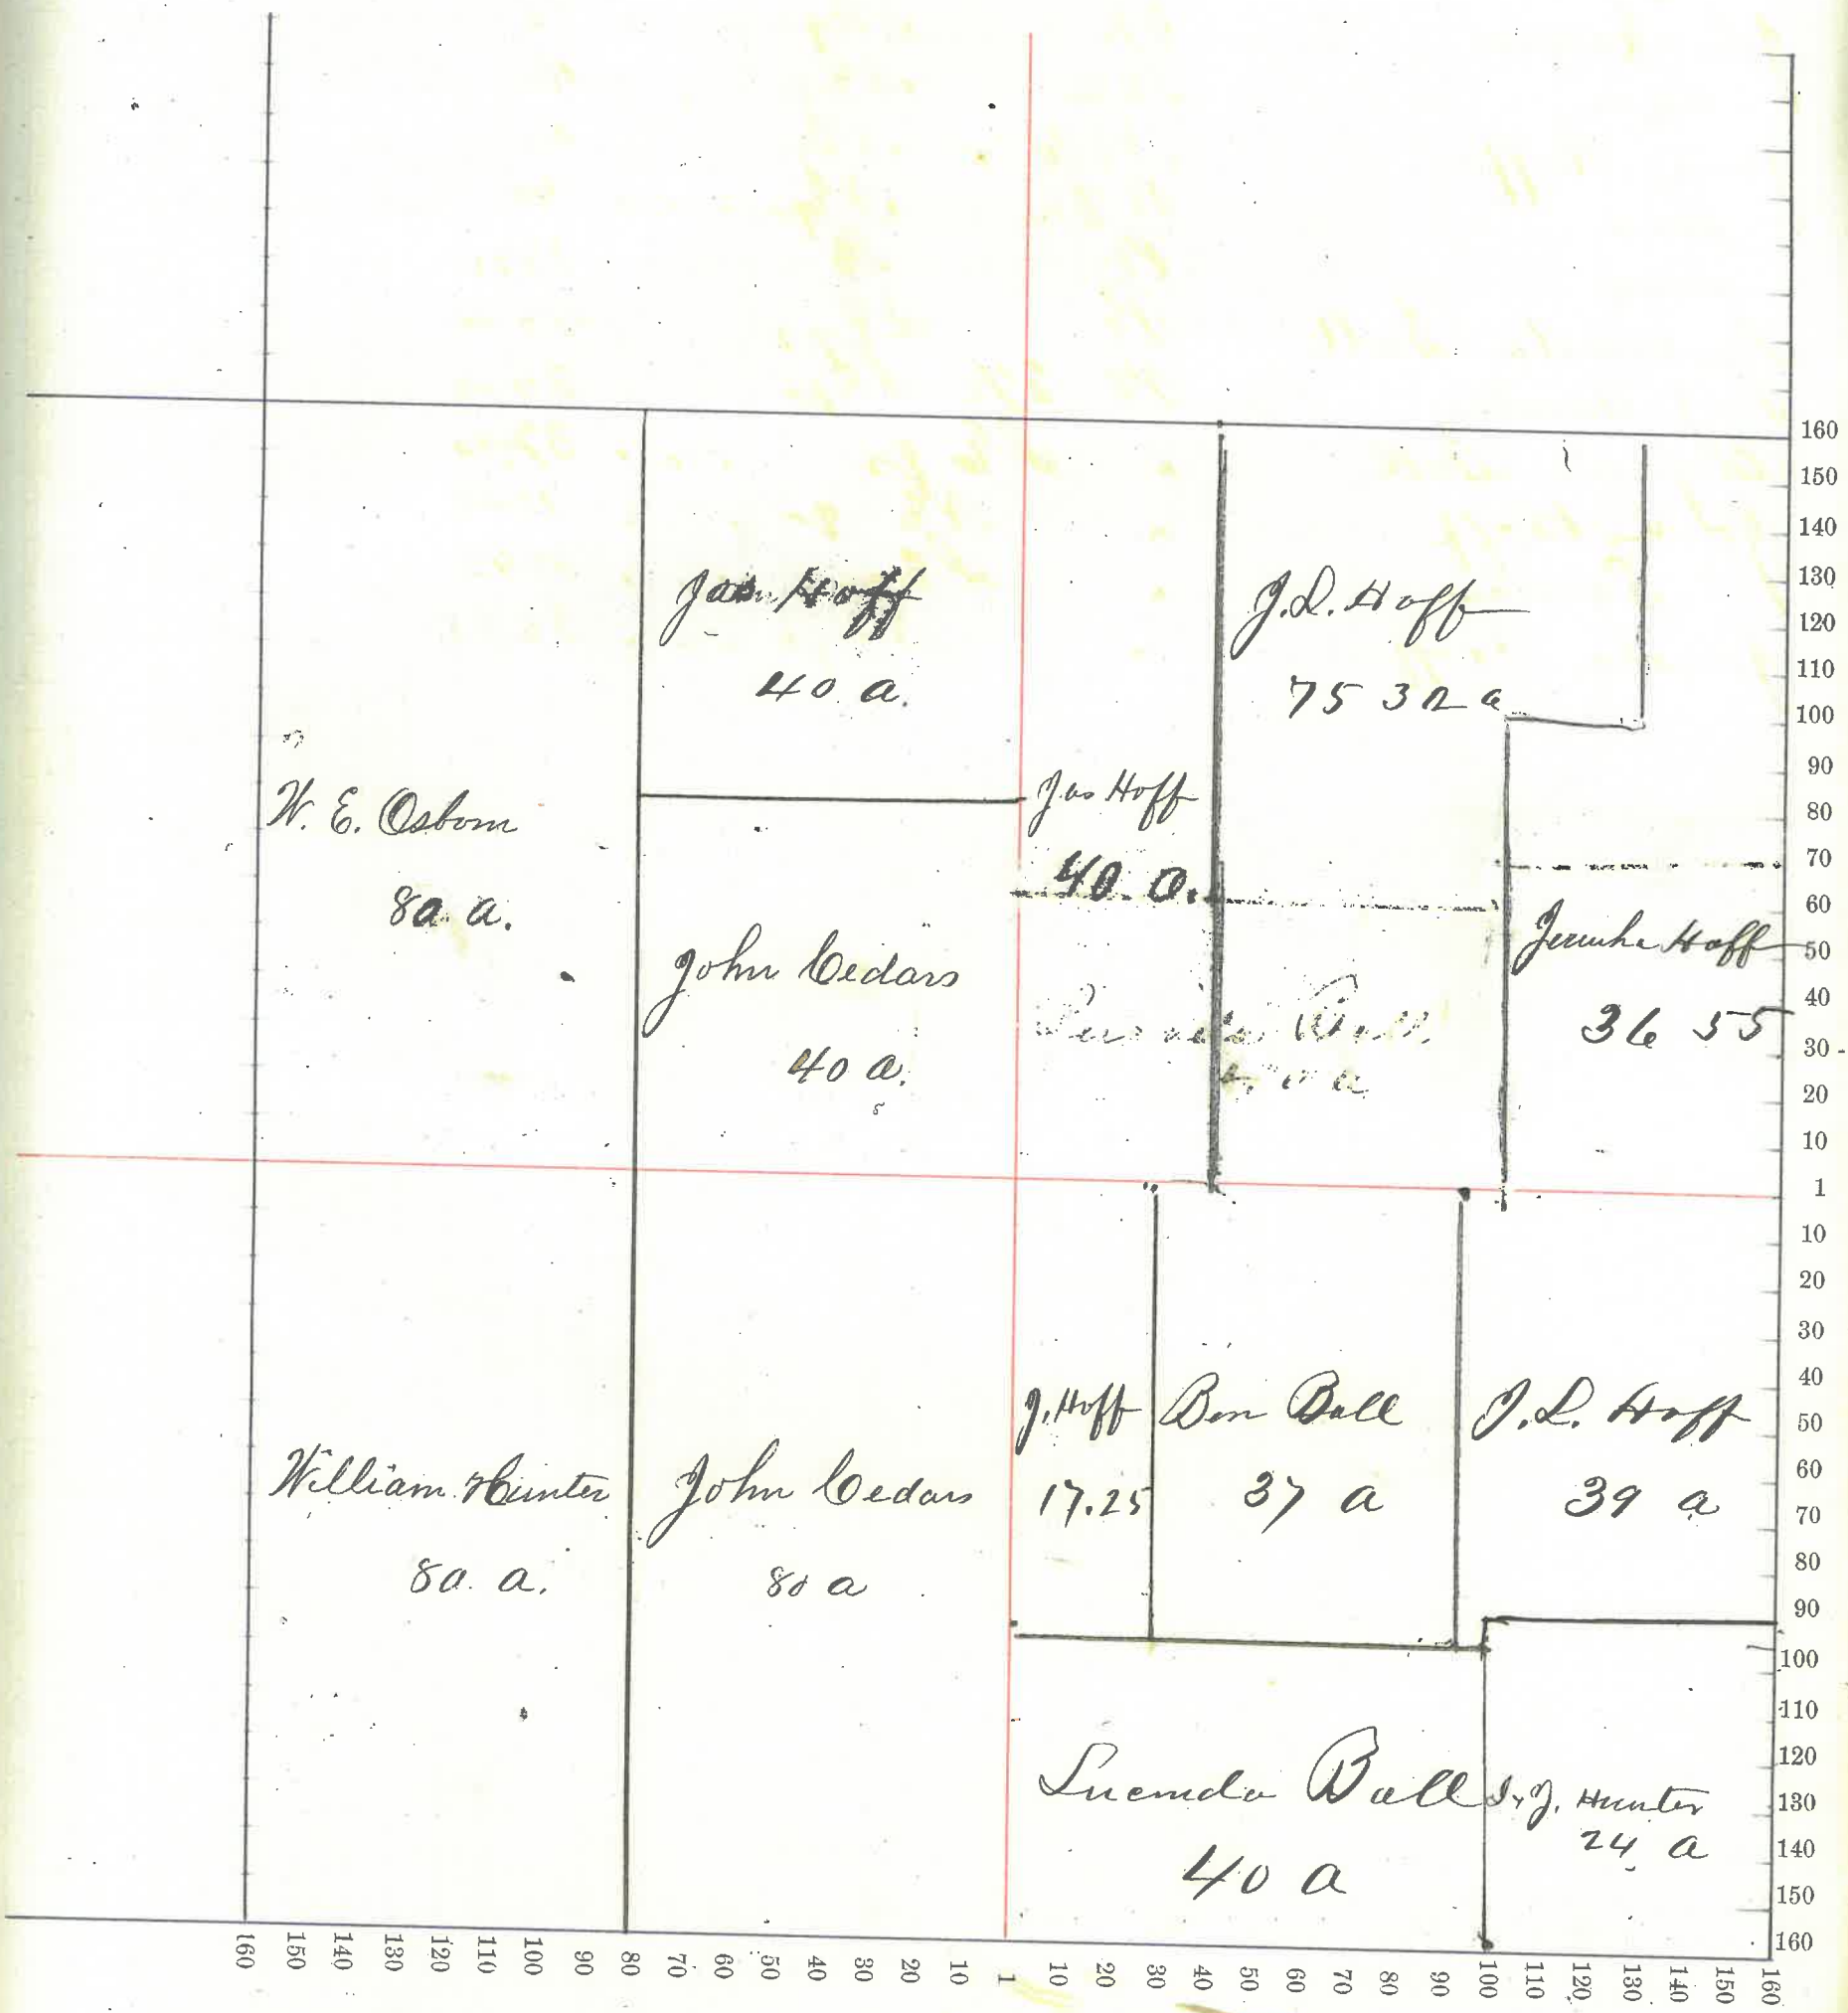 Jas Hoff
40 a.
J.L. Hoff
75 32 a
W. E. Osborn
80 a.
Jas Hoff
40 a.
John Cedars
40 a.
Jerusha Hoff
36 55
Ball
a
J. Hoff
17.25
Ben Ball
37 a
J.L. Hoff
39 a
William Hunter
80 a.
John Cedars
80 a
Lucinda Ball
40 a
J. Hunter
24 a
160
150
140
130
120
110
100
90
80
70
60
50
40
30
20
10
1
10
20
30
40
50
60
70
80
90
100
110
120
130
140
150
160
160 150 140 130 120 110 100 90 80 70 60 50 40 30 20 10 1 10 20 30 40 50 60 70 80 90 100 110 120 130 140 150 160